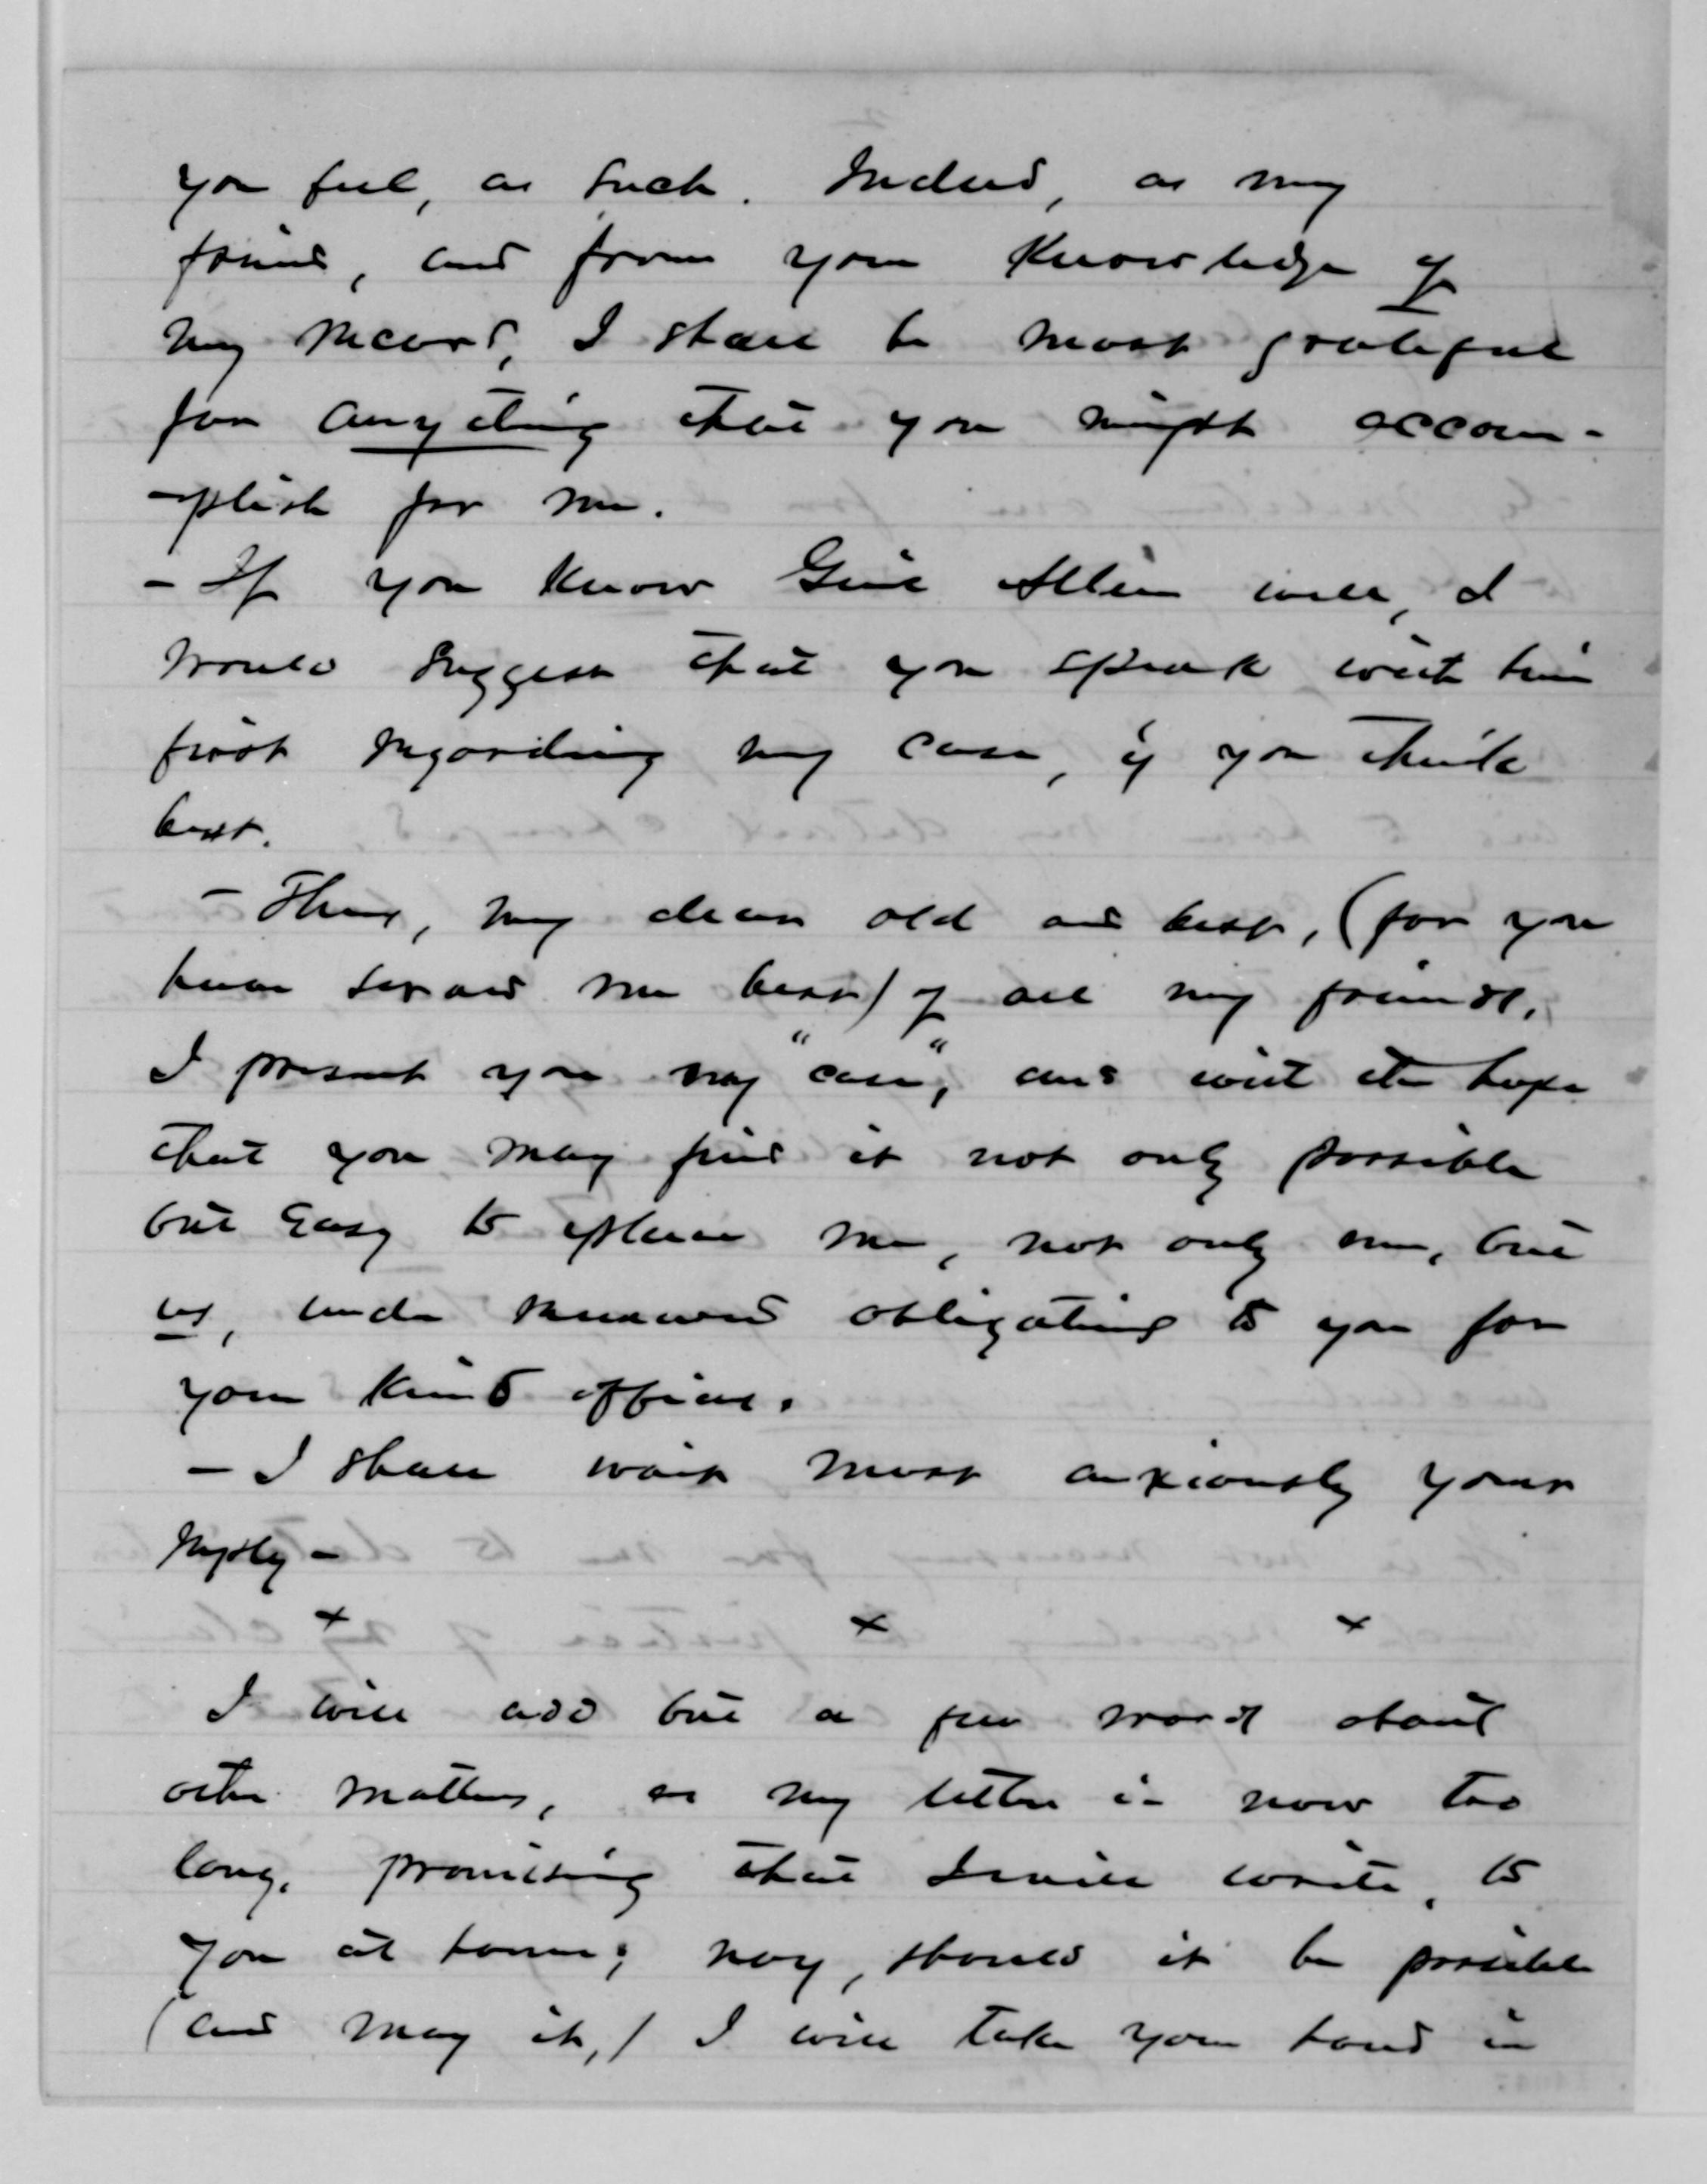 you feel, as such. Indeed, as my
friend, and from your knowledge of
my record, I shall be most grateful
for anything that you might accom-
-plish for me.
- If you know Genl Allen well, I
would suggest that you speak with him
first regarding my case, if you think
best.
- Thus, my dear old and best, (for you
have served me best) of all my friends,
I present you my "case", and with the hope
that you may find it not only possible
but easy to place me, not only me, but
us, under renewed obligations to you for
your kind offices.
- I shall wait most anxiously your
reply -
x x x
I will add but a few words about
other matters, as my letter is now too
long, promising that I will write, to
you at home; nay, should it be possible
(and may it,) I will take your hand in